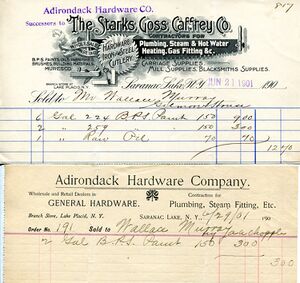 Adirondack Hardware CO.
Successors to
The Starks, Goss, Caffrey Co.
CONTRACTORS FOR
Plumbing, Steam & Hot Water
Heating, Gas Fitting &c.
HARDWARE
CUTLERY.
B.P.S. PAINTS, OILS
CARRIAGE SUPPLIES,
MILL SUPPLIES, BLACKSMITHS SUPPLIES.
LAKE PLACID, N.Y.
Saranac Lake, N.Y. JUN 21 1901 190
Sold to Mr Wallace Murray
6 Gal 224 B.P.S. Paint 150 9.00
2 " 259 " 150 3.00
1 " Raw Oil 70 70
12.70
Adirondack Hardware Company.
Wholesale and Retail Dealers in
GENERAL HARDWARE.
Contractors for
Plumbing, Steam Fitting, Etc.
Branch Store, Lake Placid, N. Y.
SARANAC LAKE, N. Y., 6/29/01 190
Order No. 191 Sold to Wallace Murray
2 Gal B.P.S. Paint 150 3.00
3.00